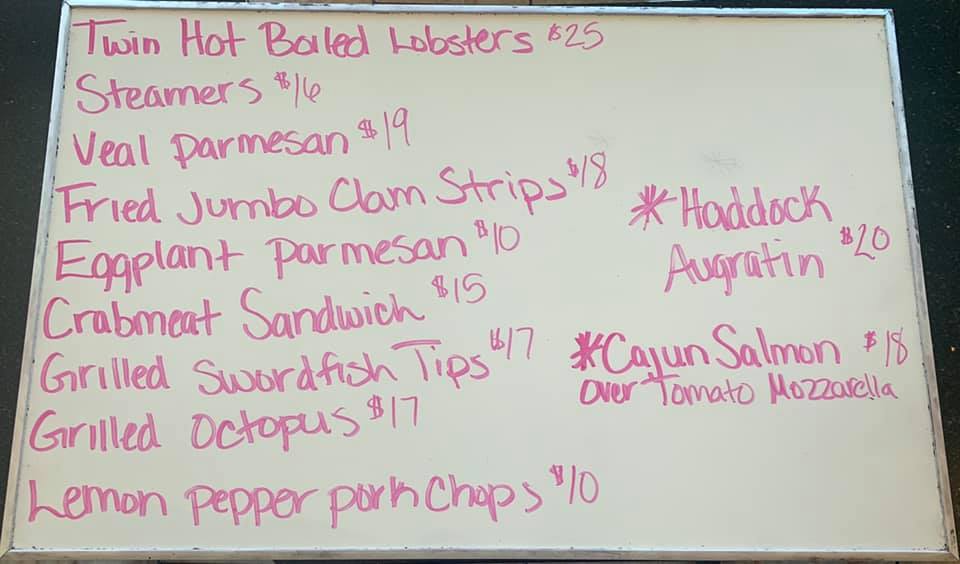 Twin Hot Boiled Lobsters $25
Steamers $16
Veal parmesan $19
Fried Jumbo Clam Strips $18
Eggplant parmesan $10
Crabmeat Sandwich $15
Grilled Swordfish Tips $17
Grilled Octopus $17
Lemon pepper pork Chops $10
*Haddock
Augratin $20
*Cajun Salmon $18
over Tomato Mozzarella